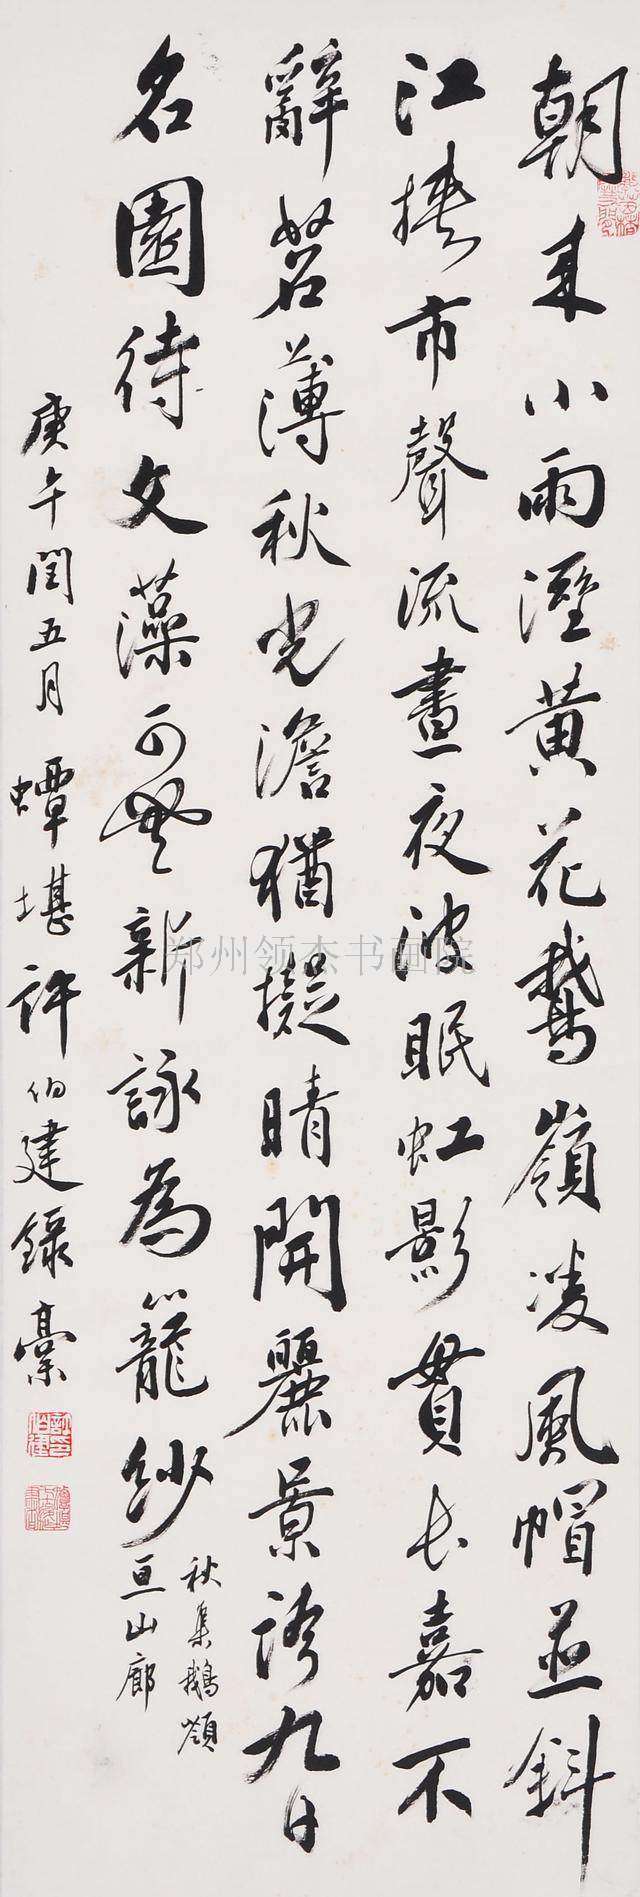 朝来小雨溼黄花鵝嶺凌風帽並斜
江挾市聲流晝夜波眠虹影貫長嘉不
辭茗薄秋光澹猶擬晴開麗景誇九日
名園待文藻可無新詠為籠紗
秋集鵝嶺
亘山廊
庚午閏五月蟫堪許伯建錄稾
郑州领杰书画院